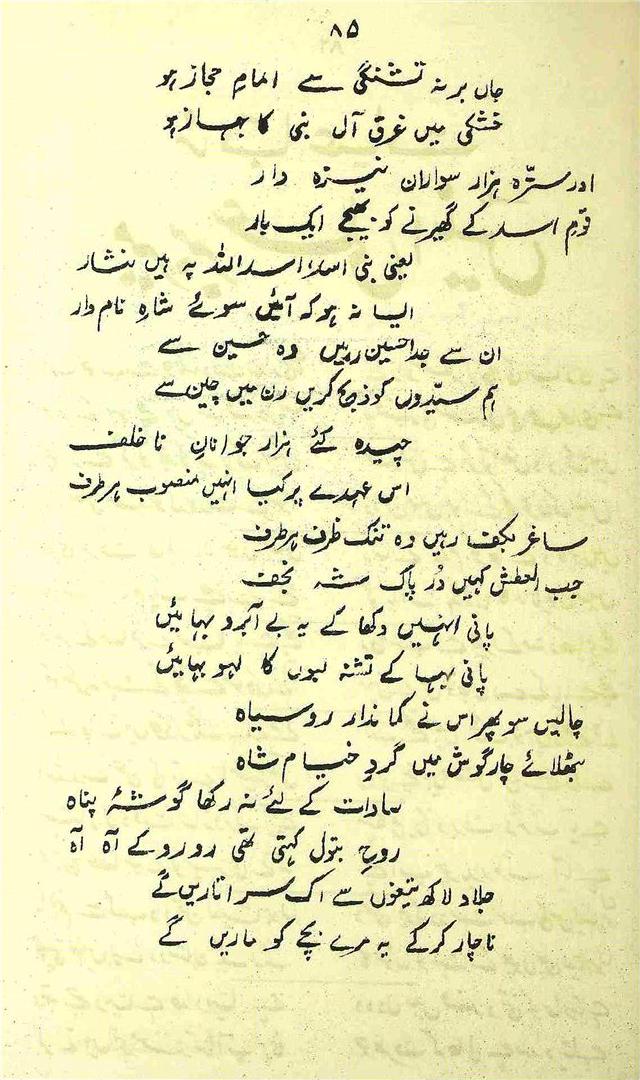 ۸۵
جاں بر نہ تشنگی سے امامِ حجاز ہو
خشکی میں غرق آل نبی کا جہاز ہو
اور ستّرہ ہزار سواران نیزہ دار
قومِ اسد کے گھیرنے کو بھیجے ایک بار
یعنی بنی اسد اسد اللہ پہ ہیں نثار
ایسا نہ ہو کہ آئیں سوئے شاہِ نام دار
ان سے جدا حسین رہیں وہ حسین سے
ہم سیّدوں کو ذبح کریں رن میں چین سے
چیدہ کئے ہزار جوانانِ ناخلف
اس عہدے پر کیا انہیں منصوب ہر طرف
ساغر بکف رہیں وہ تنک ظرف ہر طرف
جب العطش کہیں دُر پاک شہ نجف
پانی انہیں دکھا کے یہ بے آبرو بہائیں
پانی بہا کے تشنہ لبوں کا لہو بہائیں
چالیس سو پھر اس نے کماندار روسیاہ
بٹھلائے چار گوش میں گردِ خیام شاہ
سادات کے لئے نہ رکھا گوشۂ پناہ
روحِ بتول کہتی تھی رو رو کے آہ آہ
جلاد لاکھ تیغوں سے اک سر اتاریں گے
ناچار کر کے یہ مرے بچے کو ماریں گے